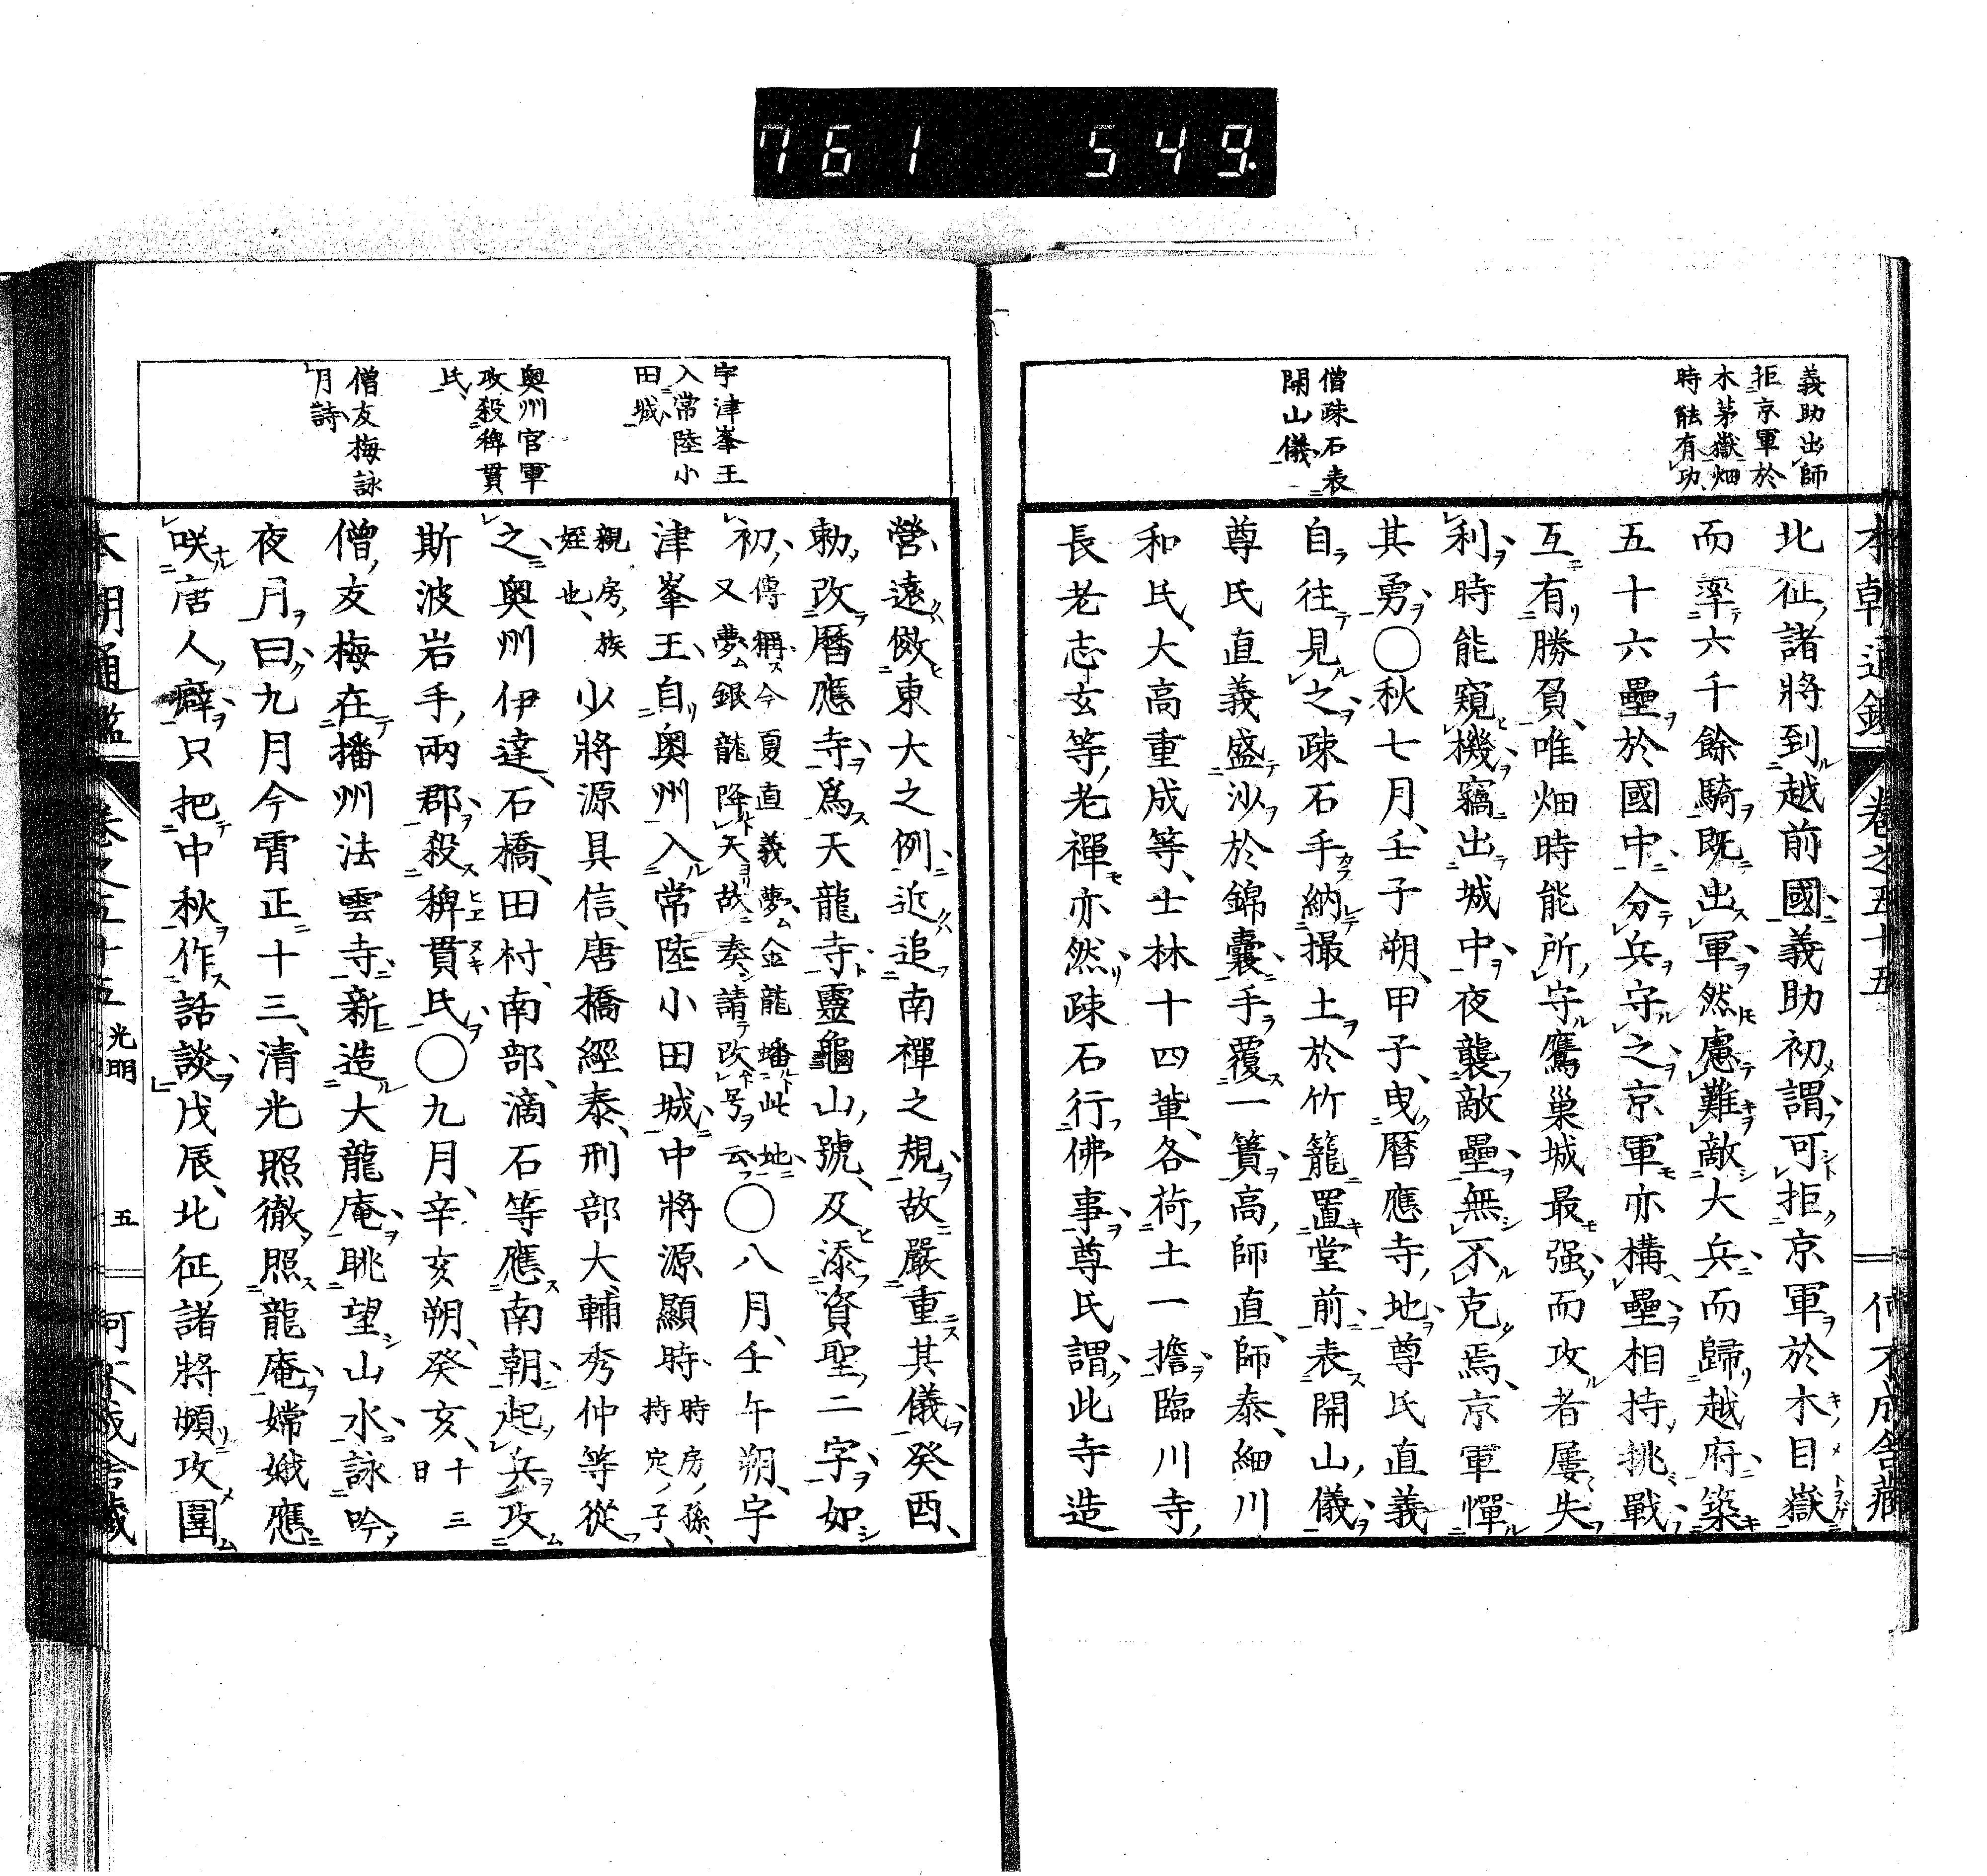 761 549.
本朝通鑑 卷之五十五 何不成舍藏
義助出師
拒京軍於
木茅嶽畑
時能有功
僧疎石表
開山儀
北征諸將到越前國義助初謂可拒京軍於木目嶽
而率六千餘騎既出軍然慮難敵大兵而歸越府築
五十六壘於國中分兵守之京軍亦構壘相持挑戰
互有勝負唯畑時能所守鷹巢城最强而攻者屢失
利時能窺機竊出城中夜襲敵壘無不克焉京軍憚
其勇○秋七月壬子朔甲子曳曆應寺地尊氏直義
自往見之疎石手納撮土於竹籠置堂前表開山儀
尊氏直義盛沙於錦囊手覆一簣高師直師泰細川
和氏大高重成等士林十四輩各荷土一擔臨川寺
長老志玄等老禪亦然疎石行佛事尊氏謂此寺造
宇津峯王
入常陸小
田城
奧州官軍
攻殺稗貫
氏
僧友梅詠
月詩
營遠倣東大之例近追南禪之規故嚴重其儀癸酉
勅改曆應寺爲天龍寺靈龜山號及添資聖二字如
初傳稱今夏直義夢金龍蟠此地又夢銀龍降天故奏請改号云○八月壬午朔宇
津峯王自奧州入常陸小田城中將源顯時時房孫持定子
親房族姪也少將源具信唐橋經泰刑部大輔秀仲等從
之奧州伊達石橋田村南部滴石等應南朝起兵攻
斯波岩手兩郡殺稗貫氏○九月辛亥朔癸亥十三日
僧友梅在播州法雲寺新造大龍庵眺望山水詠吟
夜月曰九月今宵正十三清光照徹照龍庵嫦娥應
咲唐人癖只把中秋作話談戊辰北征諸將頻攻圍
本朝通鑑 卷之五十五 光明 五 何不成舍藏